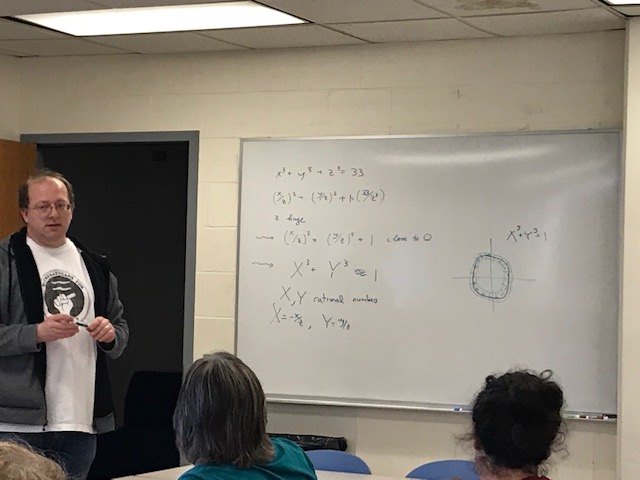 x³ + y³ + z³ = 33
(x/z)³ + (y/z)³ + 1 (33/z³)
z huge
(x/z)³ + (y/z)³ + 1 close to 0
X³ + Y³ ≈ 1
X, Y rational numbers
X = -x/z, Y = -y/z
X³+Y³=1